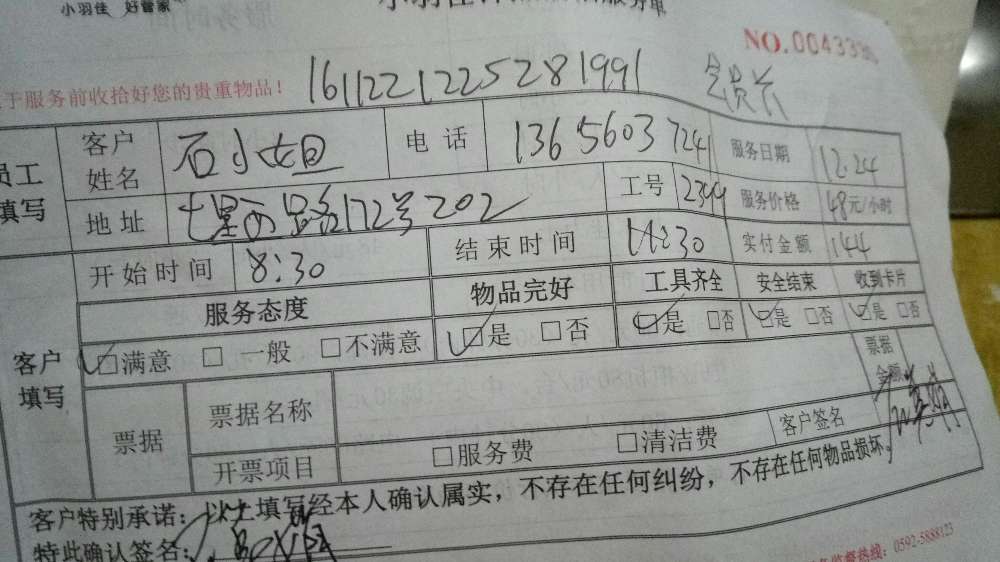 小羽佳 好管家
服务单
NO.004333
于服务前收拾好您的贵重物品！ 1611221225281991
员工填写 客户姓名 石小姐 电话 13656037241 服务日期 12.24
地址 七星西路172号202 工号 2344 服务价格 48元/小时
开始时间 8:30 结束时间 11:30 实付金额 144
客户填写 服务态度 物品完好 工具齐全 安全结束 收到卡片
☑满意 □一般 □不满意 ☑是 □否 ☑是 □否 ☑是 □否 ☑是 □否
票据 票据名称 票据金额
开票项目 □服务费 □清洁费 客户签名
客户特别承诺：以上填写经本人确认属实，不存在任何纠纷，不存在任何物品损坏，
特此确认签名：
监督热线：0592-5888123